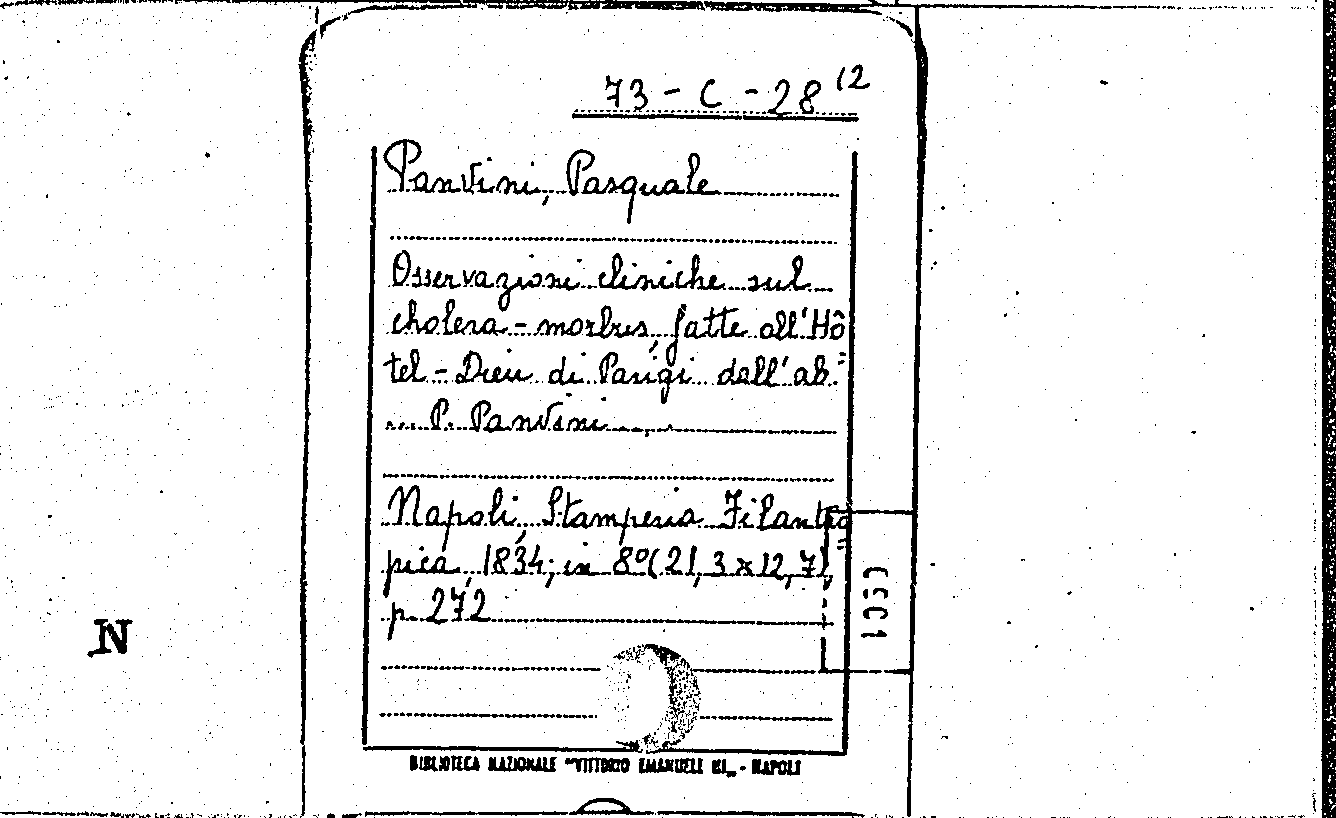 73 - C - 28 12
Panvini, Pasquale
Osservazioni cliniche sul
cholera-morbus, fatte all'Hô=
tel-Dieu di Parigi dall'ab.
... P. Panvini ...
Napoli, Stamperia Filantro=
pica, 1834; in 8º (21,3 x 12,7),
p. 272
N
BIBLIOTECA NAZIONALE "VITTORIO EMANUELE III" - NAPOLI